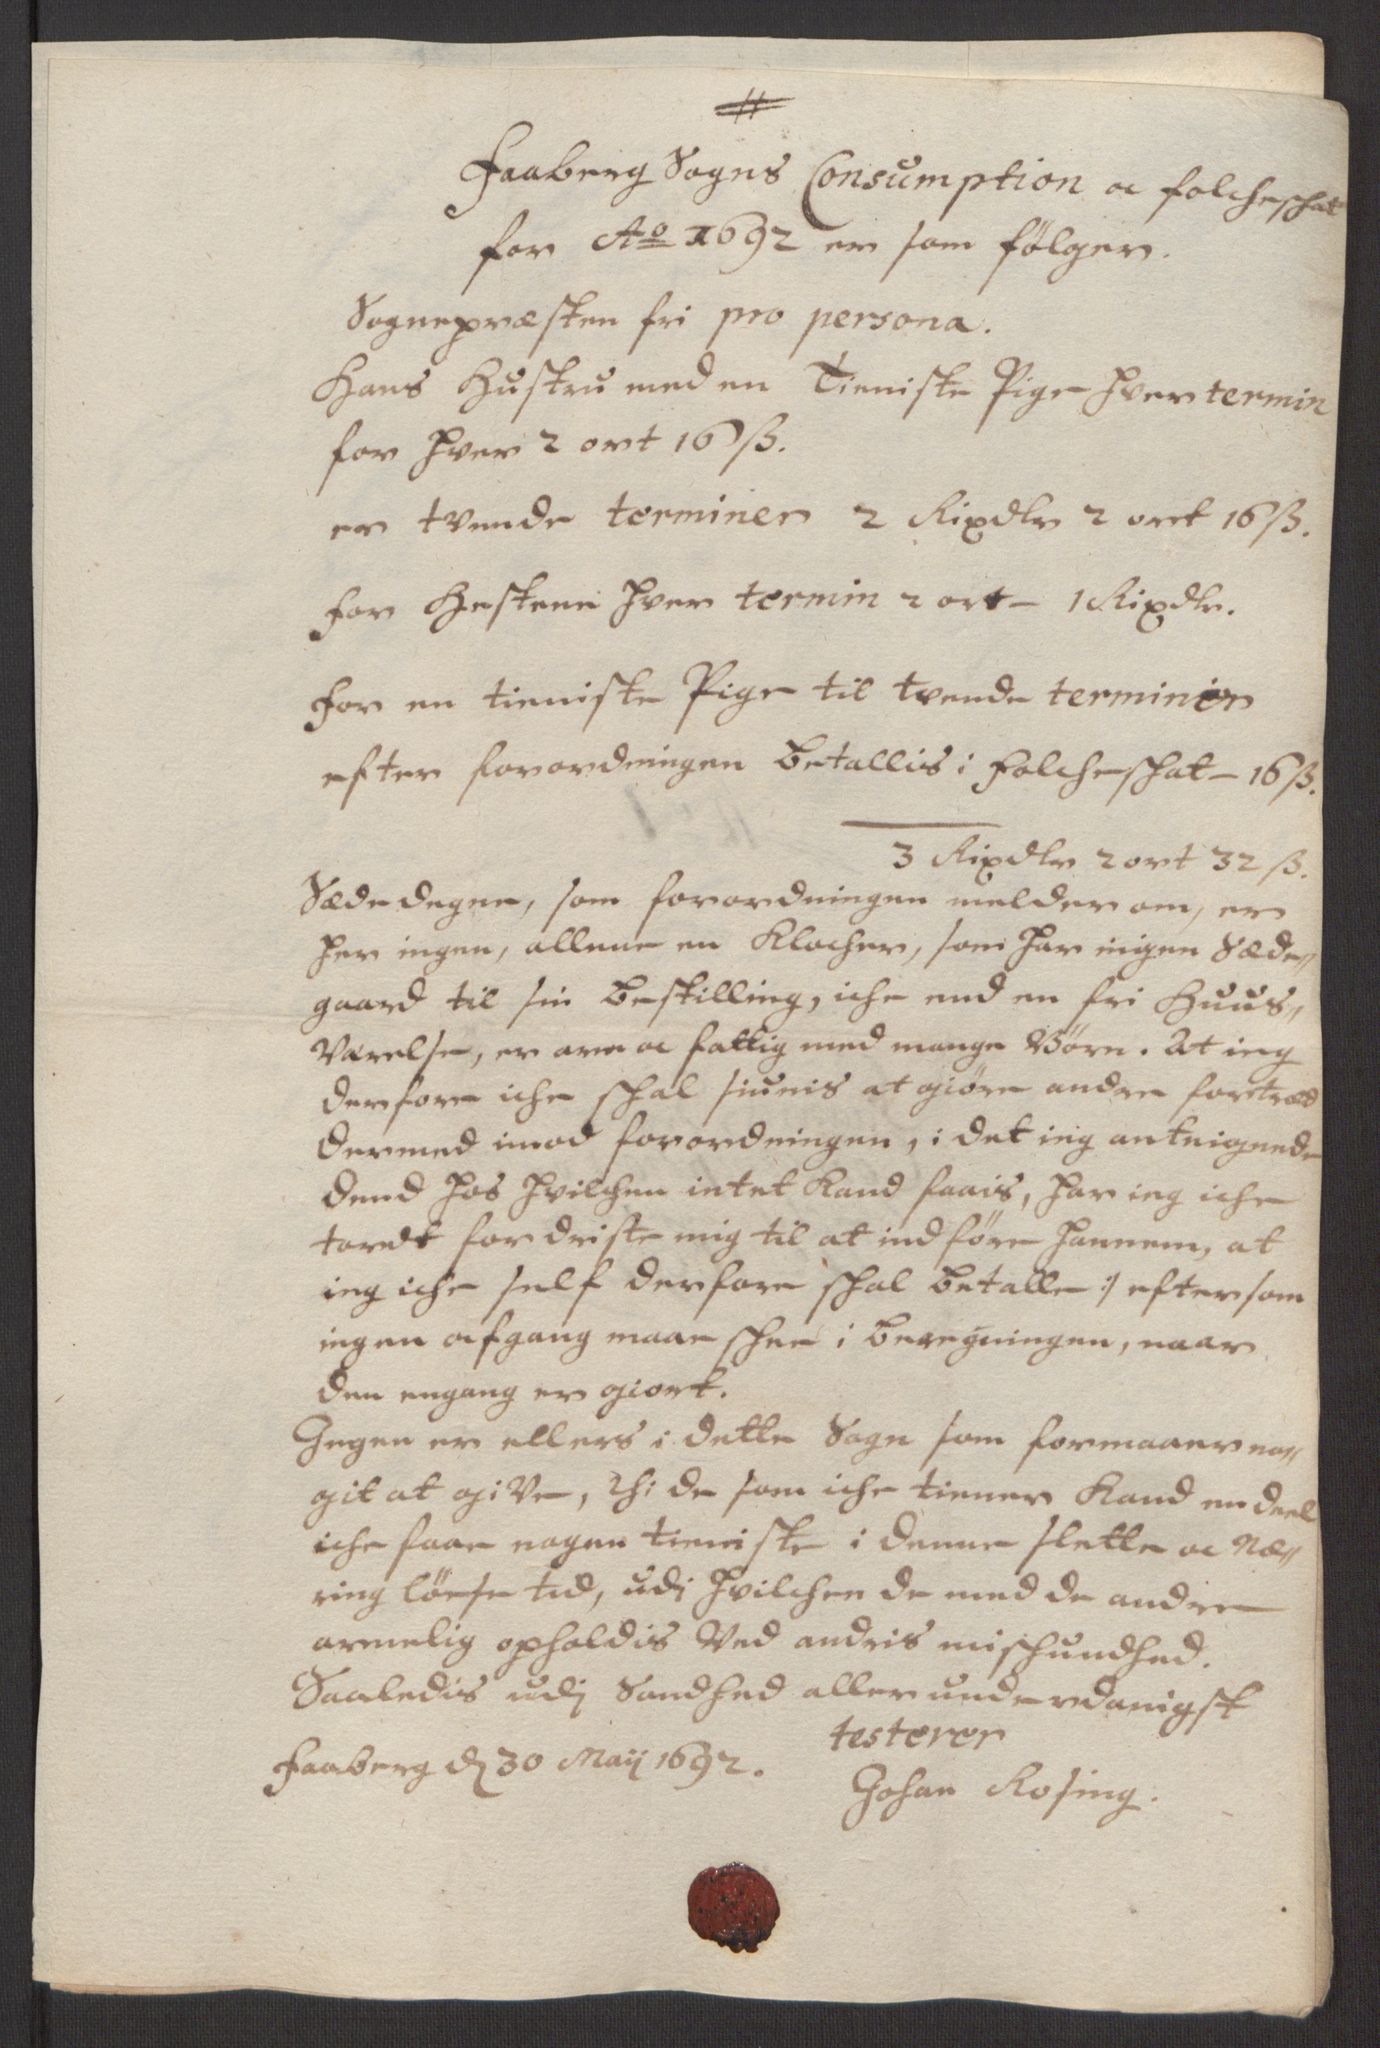 #
Faaberg Sogns Consumption oc folcheschat
for Ao 1692 er som følger.
Sognepræsten fri pro persona.
Hans Hustru med en Tieniste Pige hver termin
for hver 2 ort 16 ß.
er tvende terminer 2 Rixdlr 2 ort 16 ß.
for Hestene hver termin 2 ort - 1 Rixdlr.
for en tieniste Pige til tvende terminer
efter forordningen betallis i folcheschat - 16 ß.
3 Rixdlr 2 ort 32 ß.
Sædedegne, som forordningen melder om, er
her ingen, allene en Klocher, som har ingen Sæde„
gaard til sin bestilling, iche end en fri Huus„
Værelse, er arm oc fattig med mange Börn. At ieg
derfore iche schal siunis at giöre andre fortræd
dermed imod forordningen, i det ieg anteignede
dend hos hvilchen intet Kand faais, har ieg iche
tordt fordriste mig til at indföre hannem, at
ieg iche self derfore schal betalle :/ eftersom
ingen afgang maae schee i beregningen, naar
den engang er giort.
Ingen er ellers i dette Sogn som formaaer no„
git at give, thi de som iche tiener Kand en deel
iche faae nogen tieniste i denne slette oc Næ„
ring löese tid, udi hvilchen de med de andre
armelig opholdis Ved andris mischundhed.
Saaledis udj Sandhed allerunderdanigst
testerer
Faaberg dj 30 Maij 1692.
Johan Rosing.